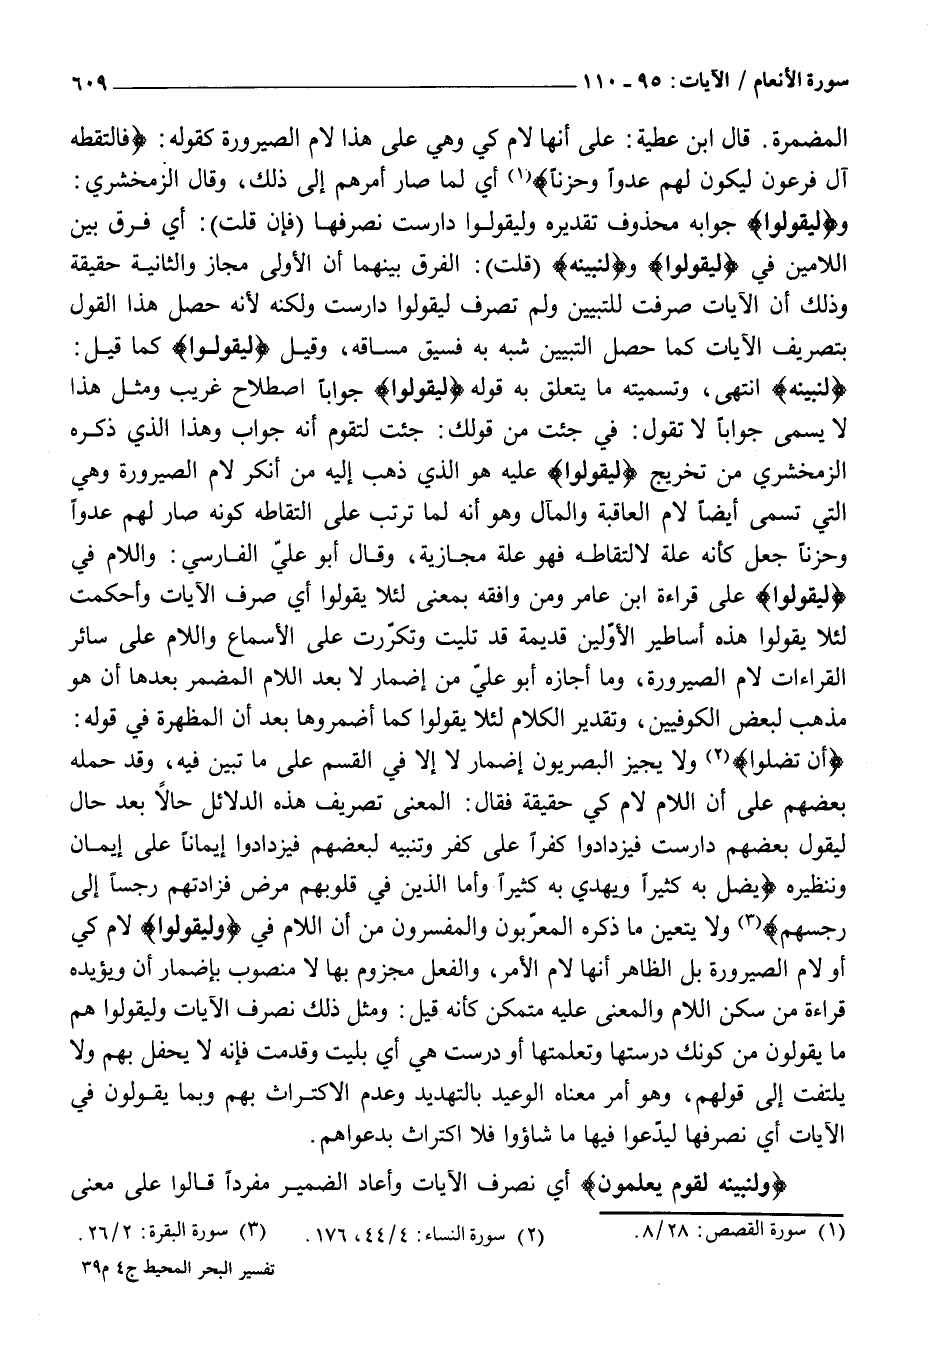 سورة الأنعام / الآيات: ٩٥ ـ ١١٠ ٦٠٩
المضمرة. قال ابن عطية: على أنها لام كي وهي على هذا لام الصيرورة كقوله: ﴿فالتقطه
آل فرعون ليكون لهم عدواً وحزناً﴾(١) أي لما صار أمرهم إلى ذلك، وقال الزمخشري:
و﴿ليقولوا﴾ جوابه محذوف تقديره وليقولوا دارست نصرفها (فإن قلت): أي فرق بين
اللامين في ﴿ليقولوا﴾ و﴿لنبينه﴾ (قلت): الفرق بينهما أن الأولى مجاز والثانية حقيقة
وذلك أن الآيات صرفت للتبيين ولم تصرف ليقولوا دارست ولكنه لأنه حصل هذا القول
بتصريف الآيات كما حصل التبيين شبه به فسيق مساقه، وقيل ﴿ليقولوا﴾ كما قيل:
﴿لنبينه﴾ انتهى، وتسميته ما يتعلق به قوله ﴿ليقولوا﴾ جواباً اصطلاح غريب ومثل هذا
لا يسمى جواباً لا تقول: في جئت من قولك: جئت لتقوم أنه جواب وهذا الذي ذكره
الزمخشري من تخريج ﴿ليقولوا﴾ عليه هو الذي ذهب إليه من أنكر لام الصيرورة وهي
التي تسمى أيضاً لام العاقبة والمآل وهو أنه لما ترتب على التقاطه كونه صار لهم عدواً
وحزناً جعل كأنه علة لالتقاطه فهو علة مجازية، وقال أبو عليّ الفارسي: واللام في
﴿ليقولوا﴾ على قراءة ابن عامر ومن وافقه بمعنى لئلا يقولوا أي صرف الآيات وأحكمت
لئلا يقولوا هذه أساطير الأوّلين قديمة قد تليت وتكرّرت على الأسماع واللام على سائر
القراءات لام الصيرورة، وما أجازه أبو عليّ من إضمار لا بعد اللام المضمر بعدها أن هو
مذهب لبعض الكوفيين، وتقدير الكلام لئلا يقولوا كما أضمروها بعد أن المظهرة في قوله:
﴿أن تضلوا﴾(٢) ولا يجيز البصريون إضمار لا إلا في القسم على ما تبين فيه، وقد حمله
بعضهم على أن اللام لام كي حقيقة فقال: المعنى تصريف هذه الدلائل حالاً بعد حال
ليقول بعضهم دارست فيزدادوا كفراً على كفر وتنبيه لبعضهم فيزدادوا إيماناً على إيمان
وننظيره ﴿يضل به كثيراً ويهدي به كثيراً وأما الذين في قلوبهم مرض فزادتهم رجساً إلى
رجسهم﴾(٣) ولا يتعين ما ذكره المعرّبون والمفسرون من أن اللام في ﴿وليقولوا﴾ لام كي
أو لام الصيرورة بل الظاهر أنها لام الأمر، والفعل مجزوم بها لا منصوب بإضمار أن ويؤيده
قراءة من سكن اللام والمعنى عليه متمكن كأنه قيل: ومثل ذلك نصرف الآيات وليقولوا هم
ما يقولون من كونك درستها وتعلمتها أو درست هي أي بليت وقدمت فإنه لا يحفل بهم ولا
يلتفت إلى قولهم، وهو أمر معناه الوعيد بالتهديد وعدم الاكتراث بهم وبما يقولون في
الآيات أي نصرفها ليدّعوا فيها ما شاؤوا فلا اكتراث بدعواهم.
﴿ولنبينه لقوم يعلمون﴾ أي نصرف الآيات وأعاد الضمير مفرداً قالوا على معنى
(١) سورة القصص: ٨/٢٨. (٢) سورة النساء: ٤٤/٤، ١٧٦. (٣) سورة البقرة: ٢٦/٢.
تفسير البحر المحيط ج٤ م٣٩